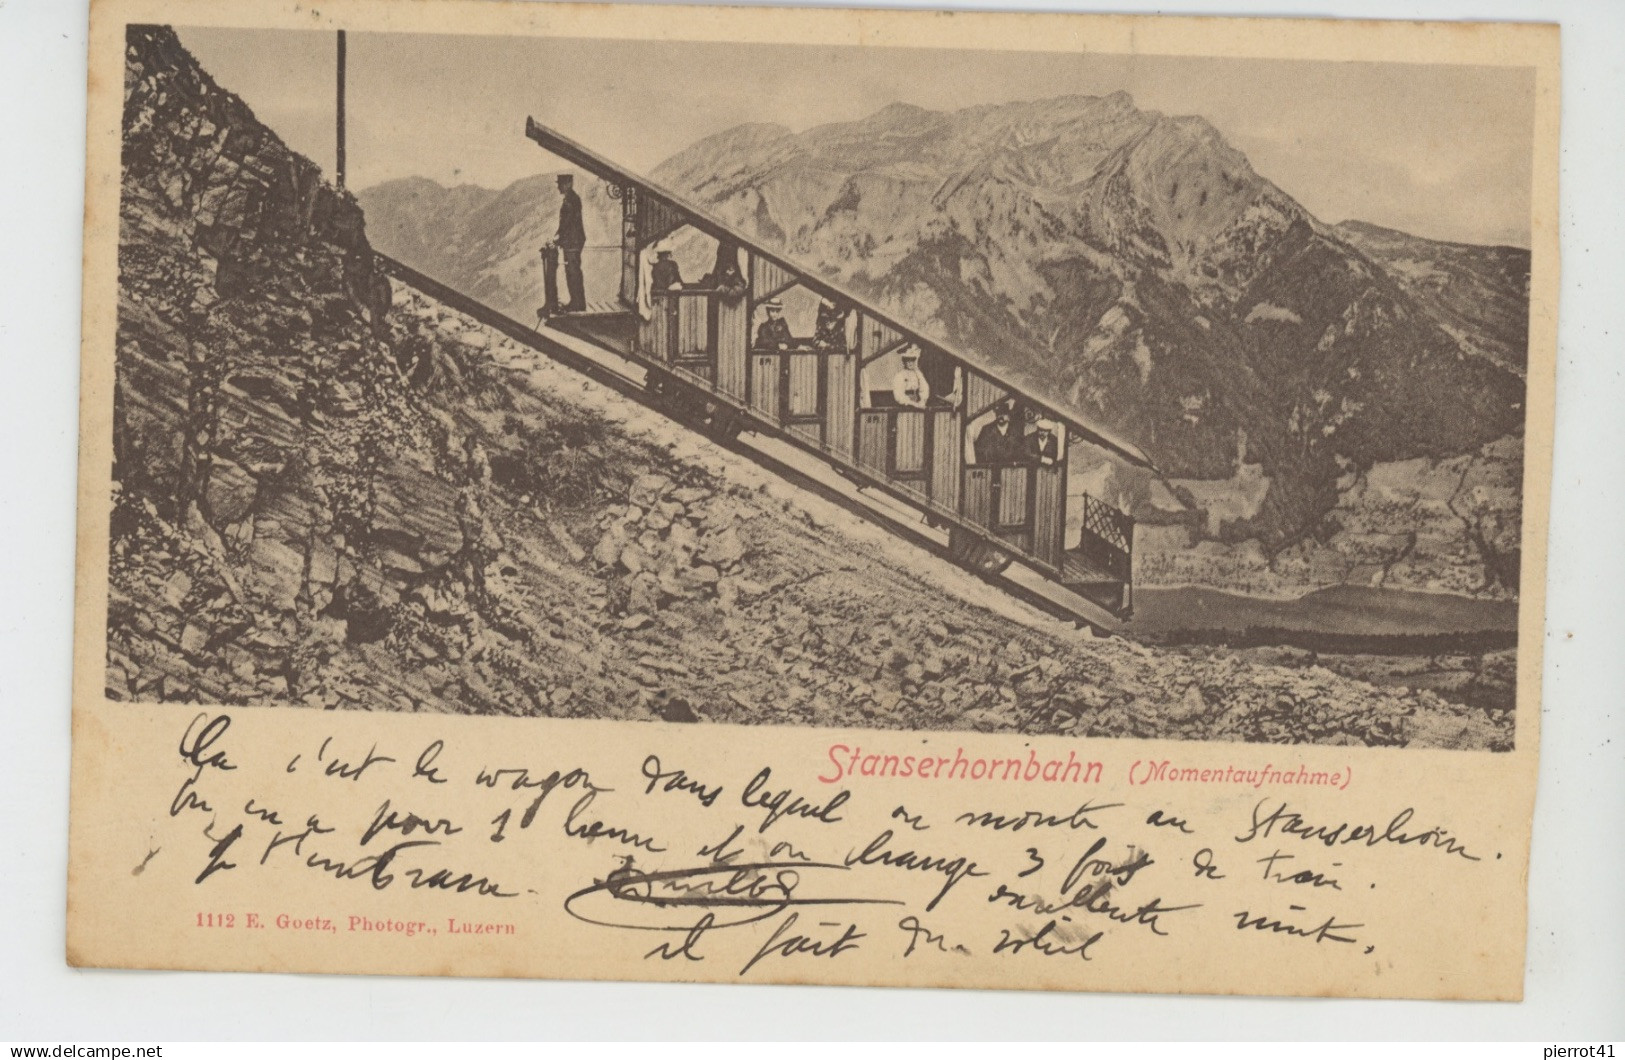 Stanserhornbahn (Momentaufnahme)
Ça c'est le wagon dans lequel on monte au Stanserhorn.
On en a pour 1 heure et on change 3 fois de train.
Je t'embrasse.
excellente nuit,
il fait du soleil
1112 E. Goetz, Photogr., Luzern
delcampe.net
pierrot41